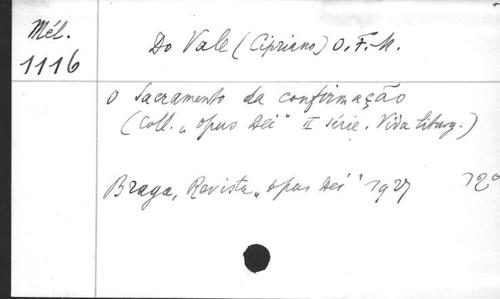 Mél.
1116
Do Vale (Cipriano) O.F.M.
O Sacramento da confirmação
(Coll. „Opus Dei" II série. Vida liturg.)
Braga, Revista „Opus Dei" 1927 12°